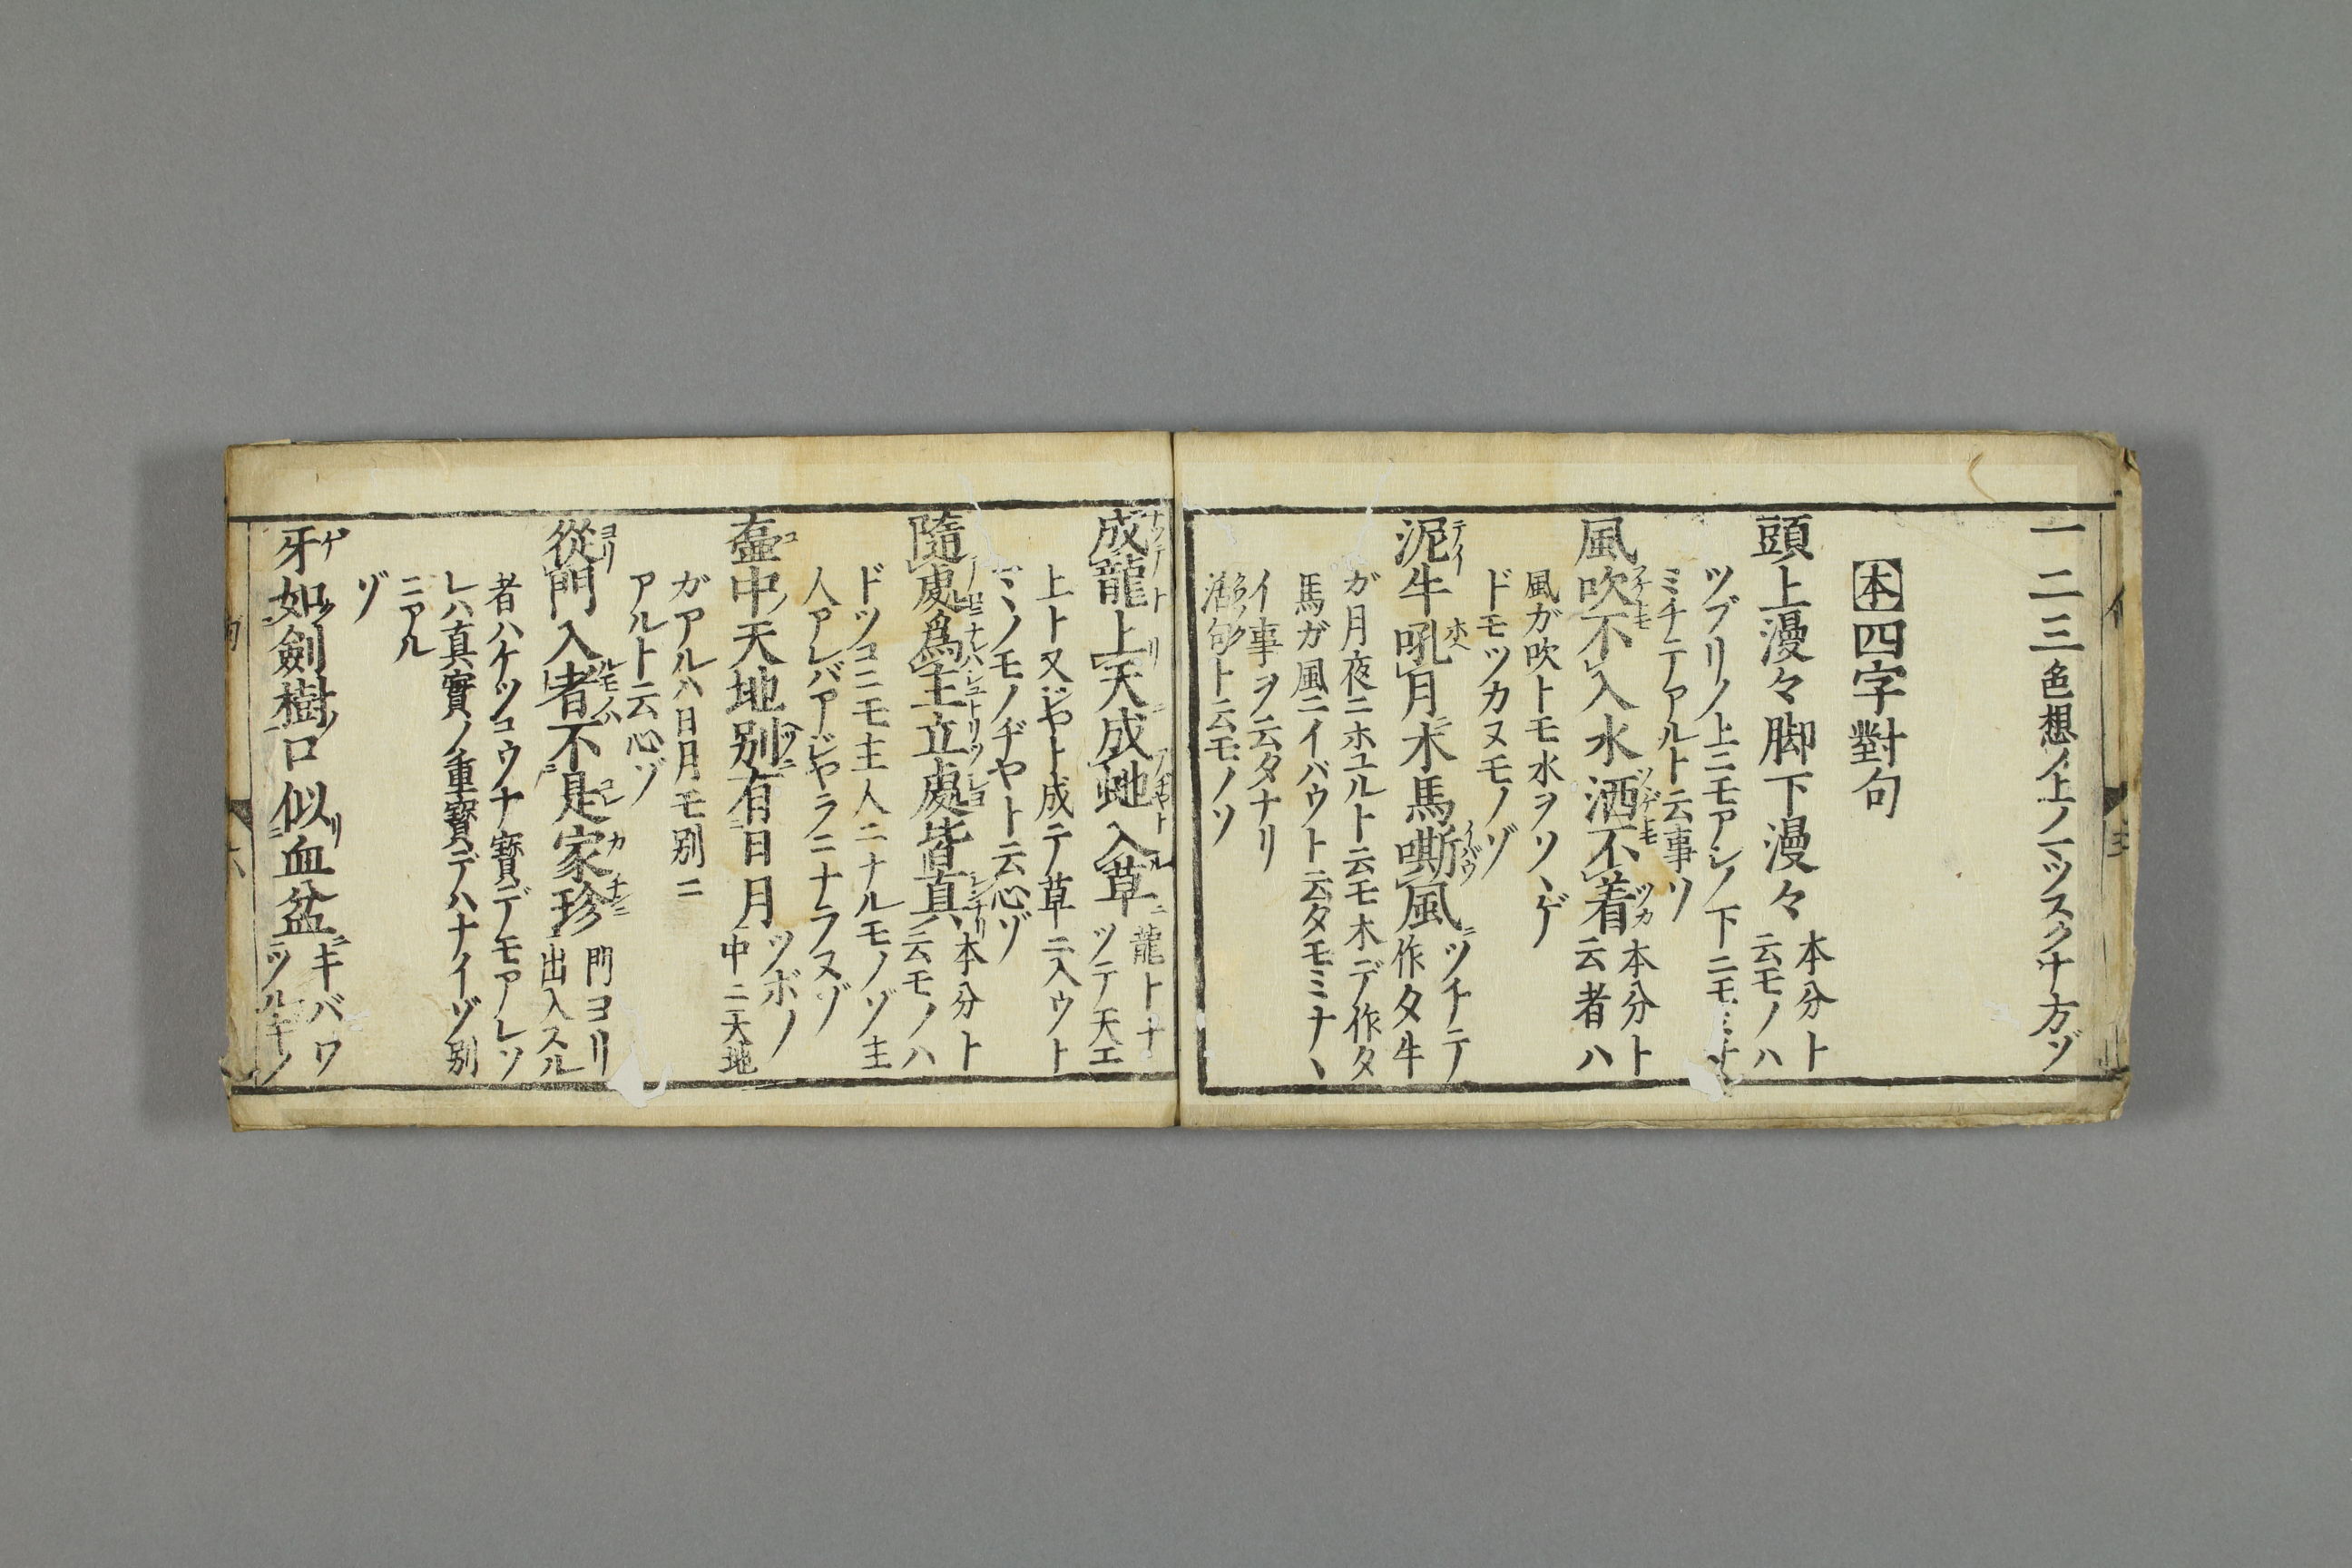 一二三色想ノ上ノ一ツスクナ方ゾ
本四字對句
頭上漫々脚下漫々 本分ト云モノハ
ツブリノ上ニモアシノ下ニモ
ミチテアルト云事ソ
風吹不入水洒不着 本分ト云者ハ
風ガ吹トモ水ヲソヽゲ
ドモツカヌモノゾ
泥牛吼月木馬嘶風 ツチテ作タ牛
ガ月夜ニホユルト云モ木デ作タ
馬ガ風ニイバウト云タモミナヽ
イ事ヲ云タナリ
活句ト云モノソ
成龍上天成虵入草 龍トナツテ天エ
上ト又ジヤト成テ草ニ入ウト
ミヽノモノヂヤト云心ゾ
隨處爲主立處皆真 本分ト云モノハ
ドツコニモ主人ニナルモノゾ主
人アレバアジヤラニナラヌゾ
壷中天地別有日月 ツボノ中ニ天地
ガアルハ日月モ別ニ
アルト云心ゾ
從門入者不是家珍 門ヨリ出入スル
者ハケツコウナ寶デモアレソ
レハ真實ノ重寶デハナイゾ別
ニアル
ゾ
牙如劍樹口似血盆 キバワツルギノ